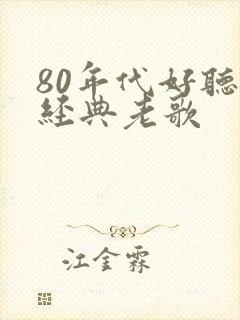 80年代好聽
經典老歌
江金霖